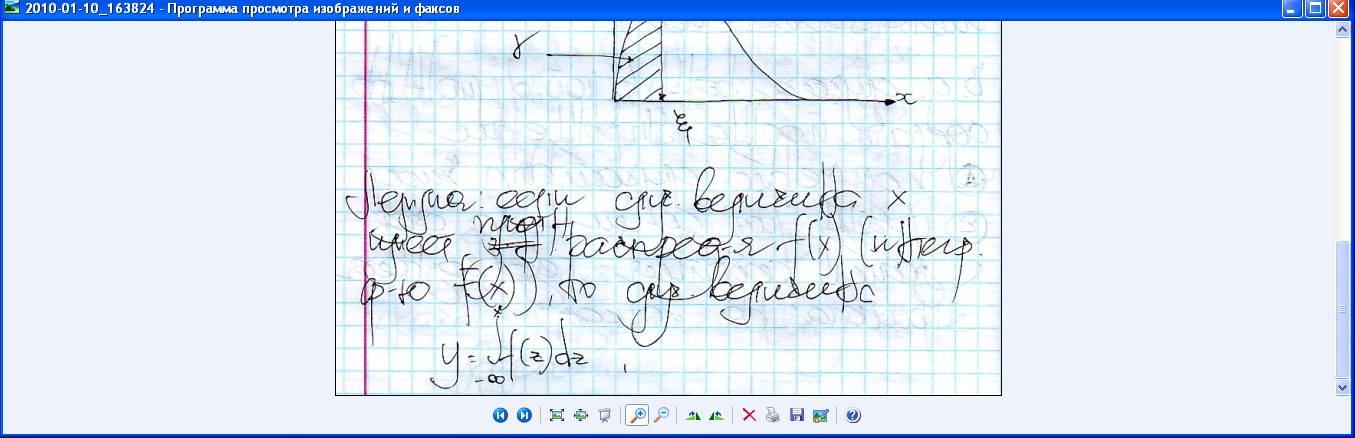 2010-01-10_163824 - Программа просмотра изображений и факсов
γ
x
ξ₁
Лемма: если случ. величина x
имеет плотн. распредел-я f(x) (интегр.
ф-ю F(x)), то случ. величина
y = ∫_{-∞}^{x} f(z)dz ,